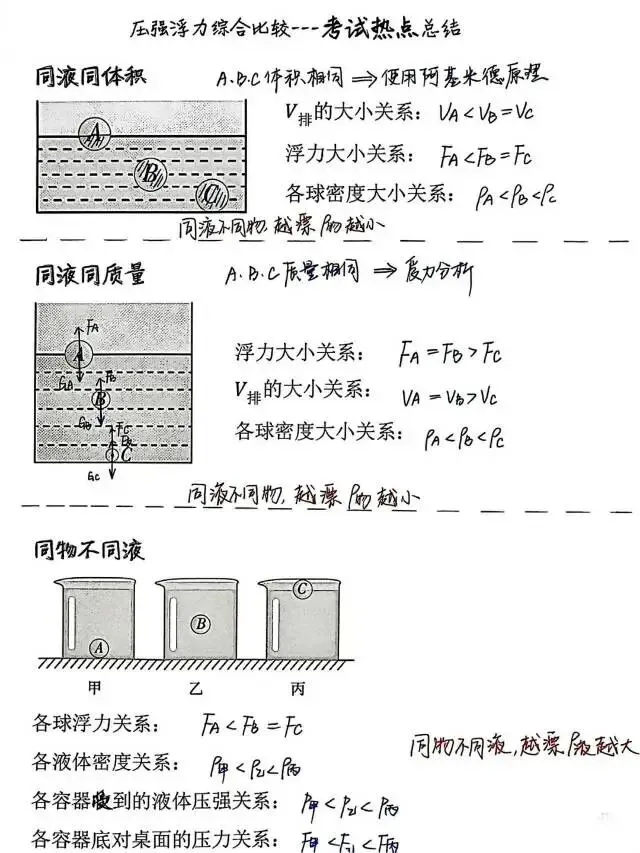 压强浮力综合比较---考试热点总结
同液同体积 A.B.C体积相同 ⇒ 使用阿基米德原理
V排的大小关系: VA<VB=VC
浮力大小关系: FA<FB=FC
各球密度大小关系: ρA<ρB<ρC
A
B
C
同液不同物,越漂ρ物越小
同液同质量 A.B.C质量相同 ⇒ 受力分析
FA
A
GA
FB
B
GB
FC
C
GC
浮力大小关系: FA=FB>FC
V排的大小关系: VA=VB>VC
各球密度大小关系: ρA<ρB<ρC
同液不同物,越漂ρ物越小
同物不同液
A
B
C
甲 乙 丙
各球浮力关系: FA<FB=FC
各液体密度关系: ρ甲<ρ乙<ρ丙
同物不同液,越漂ρ液越大
各容器受到的液体压强关系: P甲<P乙<P丙
各容器底对桌面的压力关系: F甲<F乙<F丙